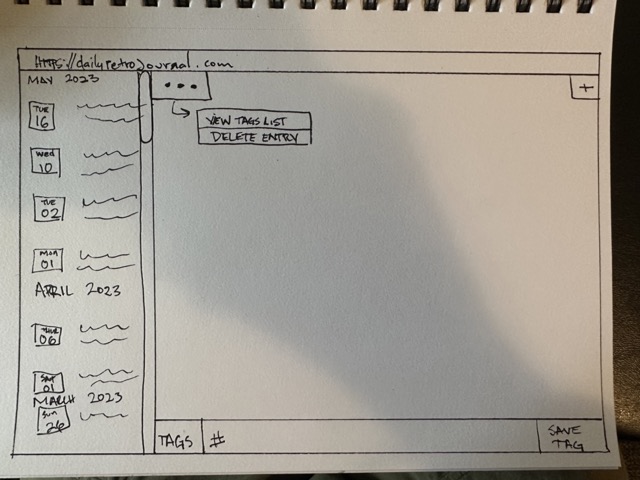 https://dailyretrojournal.com
MAY 2023
TUE
16
WED
10
TUE
02
MON
01
APRIL 2023
THUR
06
SAT
01
MARCH 2023
SUN
26
•••
VIEW TAGS LIST
DELETE ENTRY
+
TAGS
#
SAVE
TAG